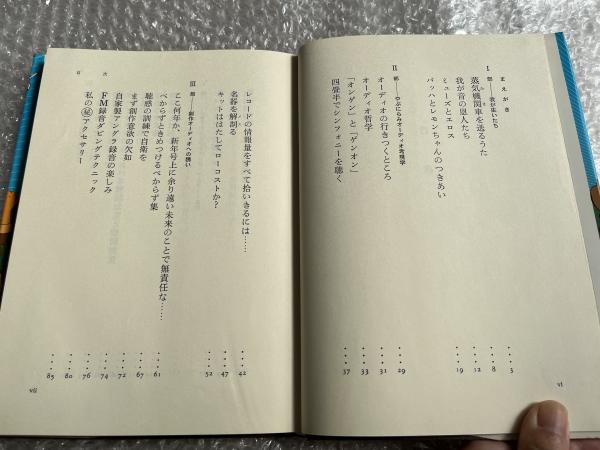 まえがき
Ⅰ 部——我が生いたち
蒸気機関車を送るうた……3
我が音の恩人たち……8
ミューズとエロス……12
バッハとレモンちゃんのつきあい……19
Ⅱ 部——やぶにらみオーディオ考現学
オーディオの行きつくところ……29
オーディオ哲学……31
「オンゲン」と「ゲンオン」……33
四畳半でシンフォニーを聴く……37
vi
レコードの情報量をすべて拾いきるには……42
名器を解剖る……47
キットははたしてローコストか?……52
Ⅲ 部——創作オーディオへの誘い
ここ何年か、新年号上に余り遠い未来のことで無責任な……61
べからずときめつけるべからず集……67
聴感の訓練で自衛を……72
まず創作意欲の欠如……74
自家製アングラ録音の楽しみ……76
FM録音ダビングテクニック……80
私の㊙アクセサリー……85
目次
vii